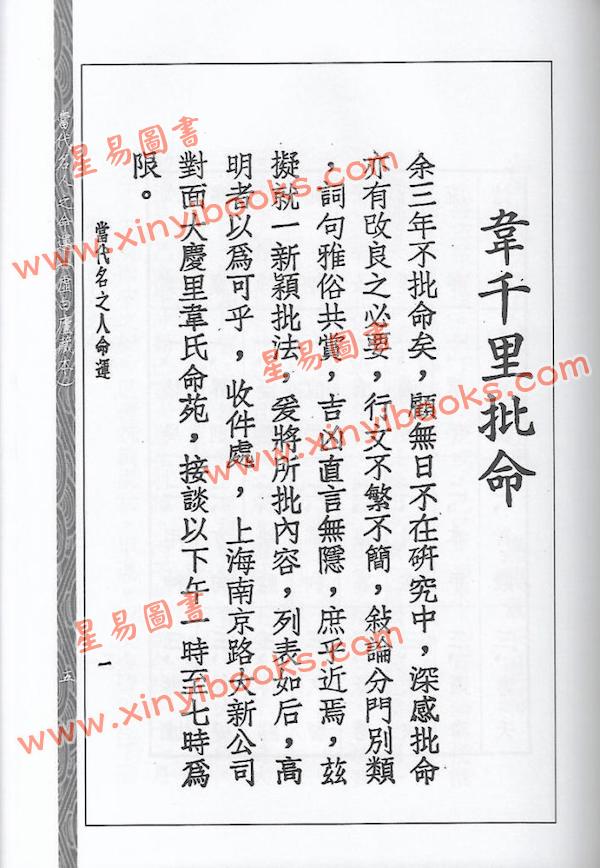 韋千里批命
余三年不批命矣，顧無日不在研究中，深感批命
亦有改良之必要，行文不繁不簡，敍論分門別類
，詞句雅俗共賞，吉凶直言無隱，庶乎近焉，玆
擬就一新穎批法，爰將所批內容，列表如后，高
明者以爲可乎，收件處，上海南京路大新公司
對面大慶里韋氏命苑，接談以下午一時至七時爲
限。
當代名之人命運
一
當代名人之命運（虛白廬藏本）
五
星易圖書
www.xinyibooks.com
星易圖書
www.xinyibooks.com
星易圖書
www.xinyibooks.com